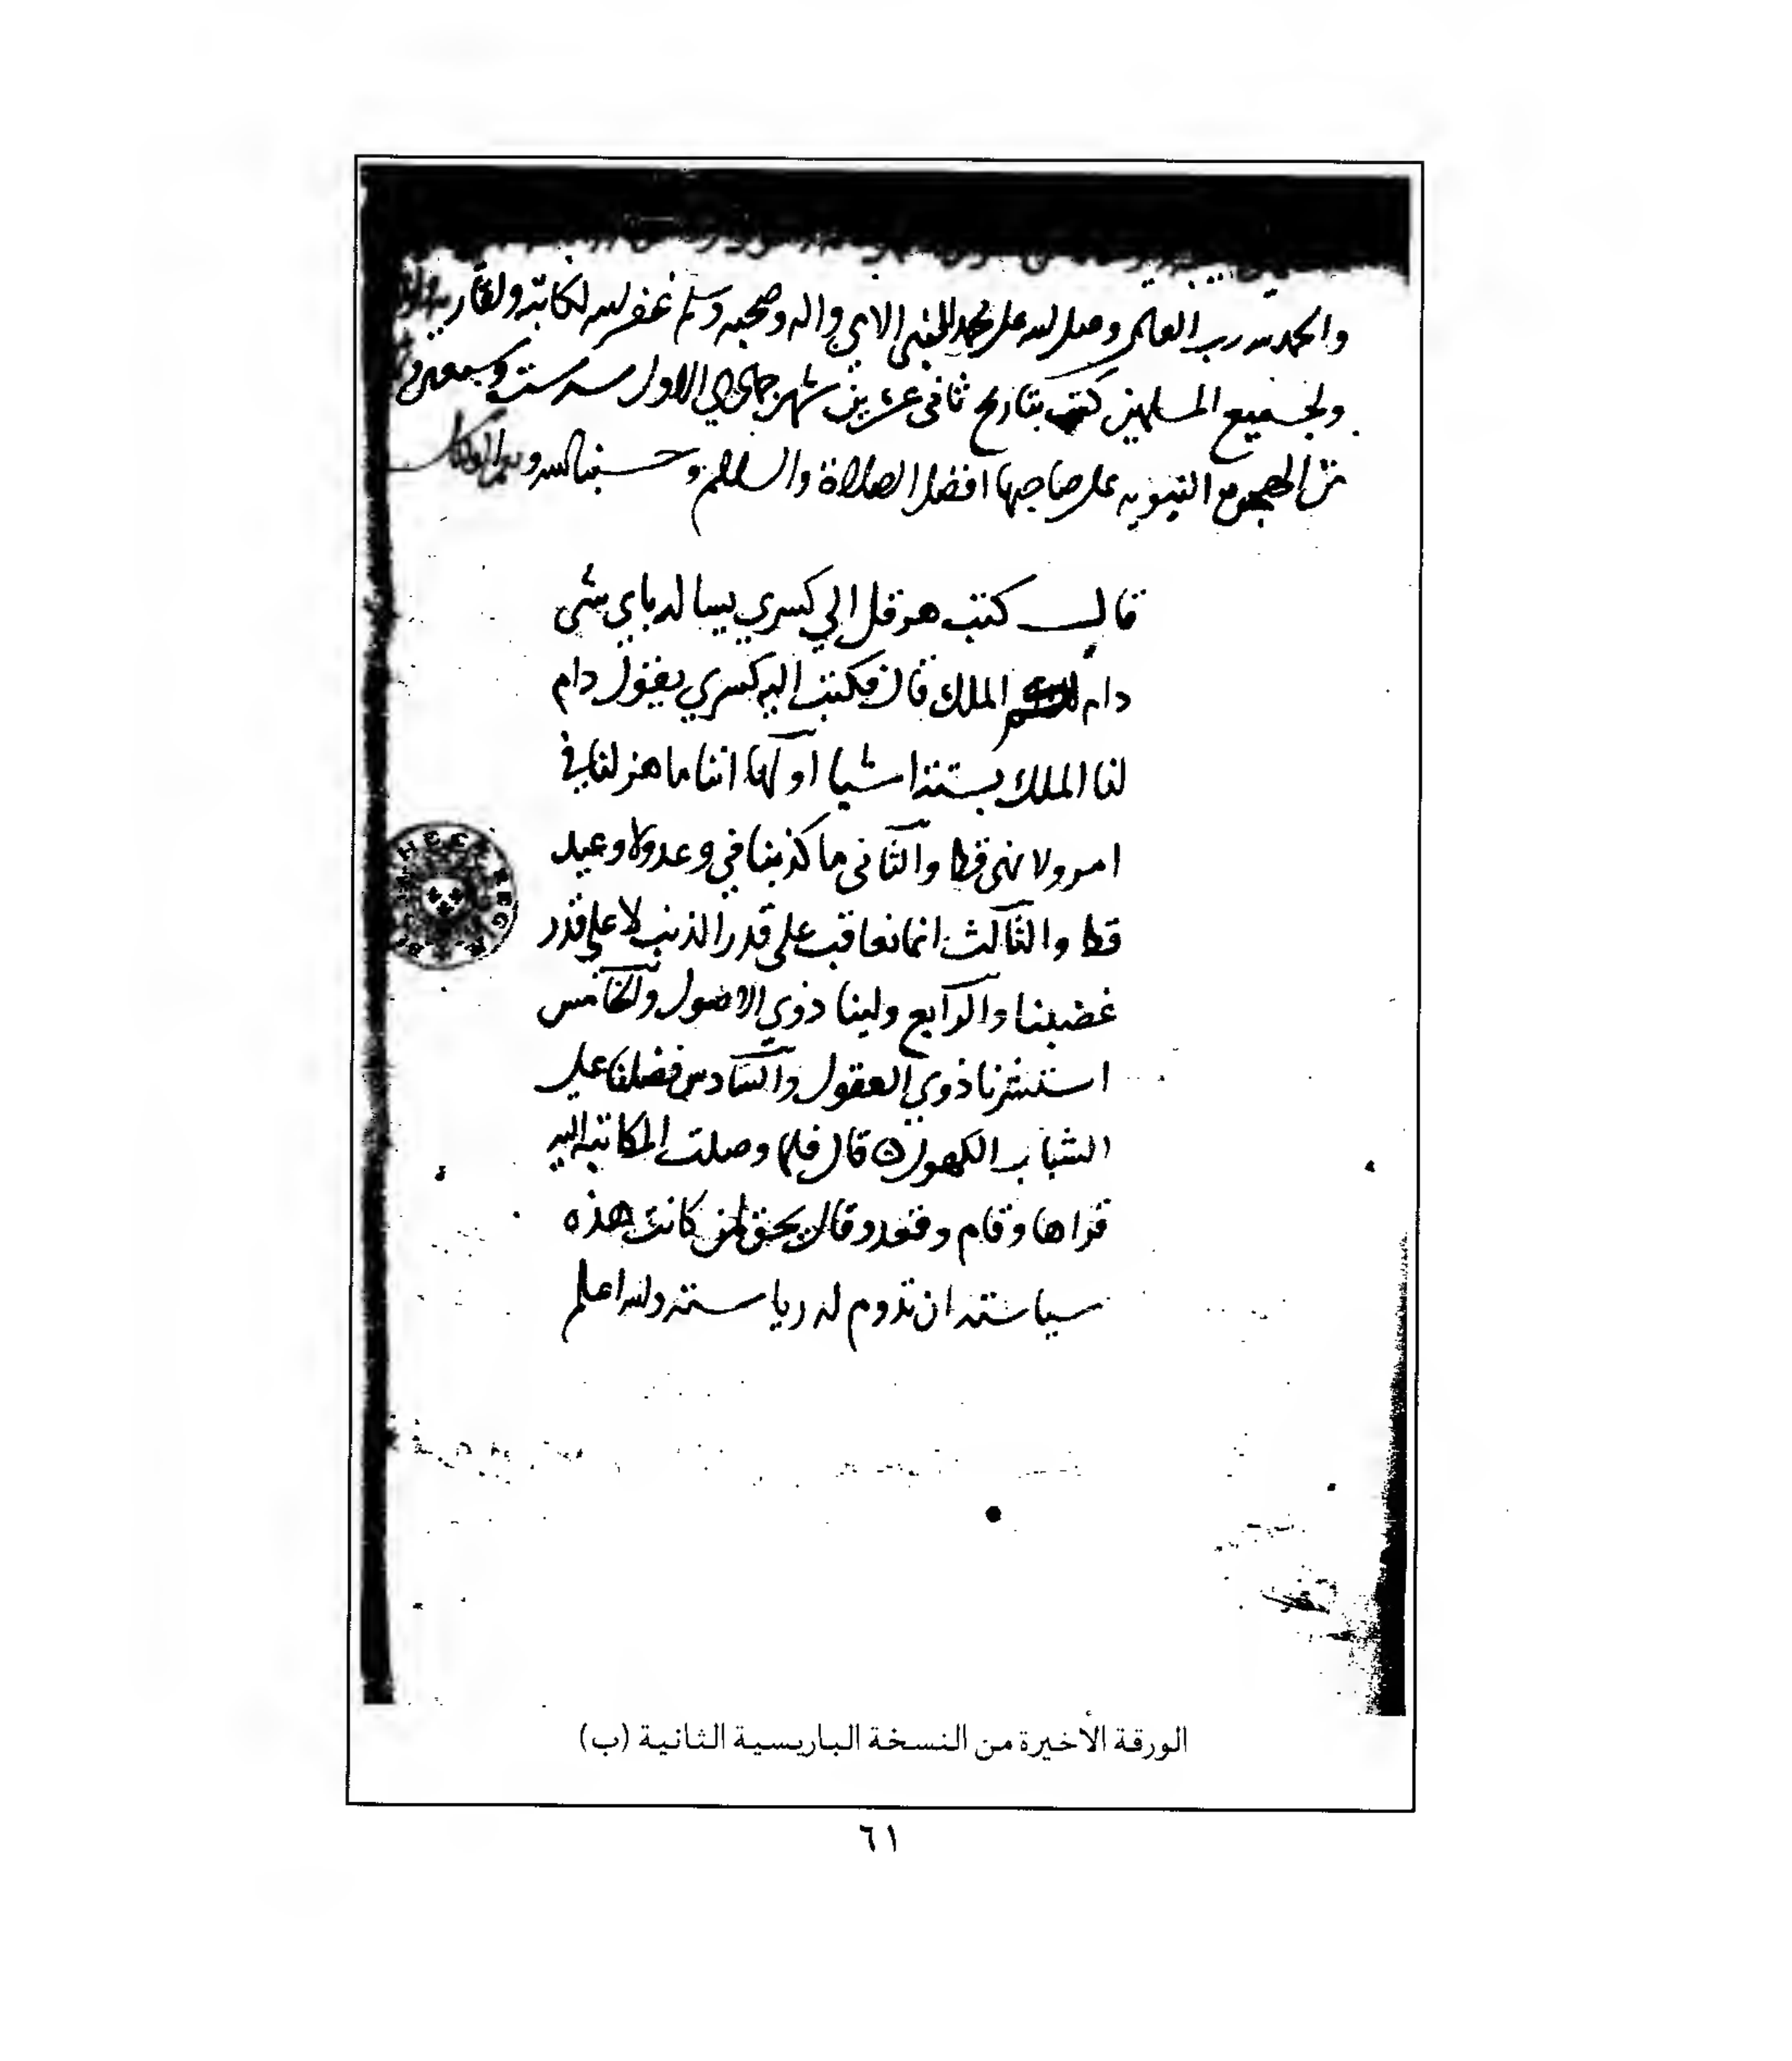 والحمد لله رب العالمين وصلى الله على محمد النبي الامي واله وصحبه وسلم غفر الله لكاتبه ولقاريه
ولجميع المسلمين كتب بتاريخ ثاني عشرين شهر جمادي الاول سنه ست وسبعين
من الهجره النبويه على صاحبها افضل الصلاة والسلام وحسبنا الله و
قال كتب هرقل الي كسري يساله باي شى
دام الملك قال فكتب اليه كسري يقول دام
لنا الملك بستة اشيا اولها اننا ما هزلنا في
امر ولا نهى قط والثاني ما كذبنا في وعد ولا وعيد
قط والثالث انما نعاقب على قدر الذنب لا على قدر
غضبنا والرابع ولينا ذوي الاصول والخامس
استشرنا ذوي العقول والسادس فضلنا على
الشباب الكهول ۞ قال فلما وصلت المكاتبه اليه
قراها وقام وقعد وقال يحق لمن كانت هذه
سياسته ان تدوم له رياسته والله اعلم
الورقة الأخيرة من النسخة الباريسية الثانية (ب)
٦١